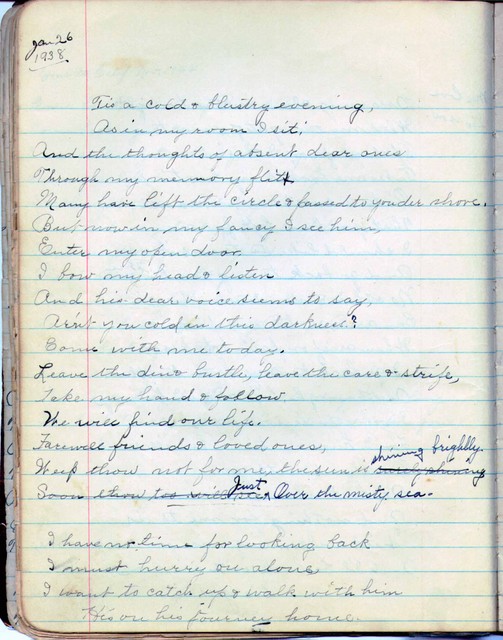 Jan 26
1938.
Tis a cold & blustry evening,
As in my room I sit,
And the thoughts of absent dear ones
Through my memory flit
Many have left the circle & passed to yonder shore.
But now in my fancy I see him,
Enter my open door,
I bow my head & listen
And his dear voice seems to say,
Arn't you cold in this darkness?
Come with me today.
Leave the din & bustle, leave the care & strife,
Take my hand & follow
We will find our life.
Farewell friends & loved ones,
Weep thou not for me, the sun is surely shining shining brightly.
Soon thou too will see, Just Over the misty sea.
I have no time for looking back
I must hurry on alone
I want to catch up & walk with him
His on his journey home.